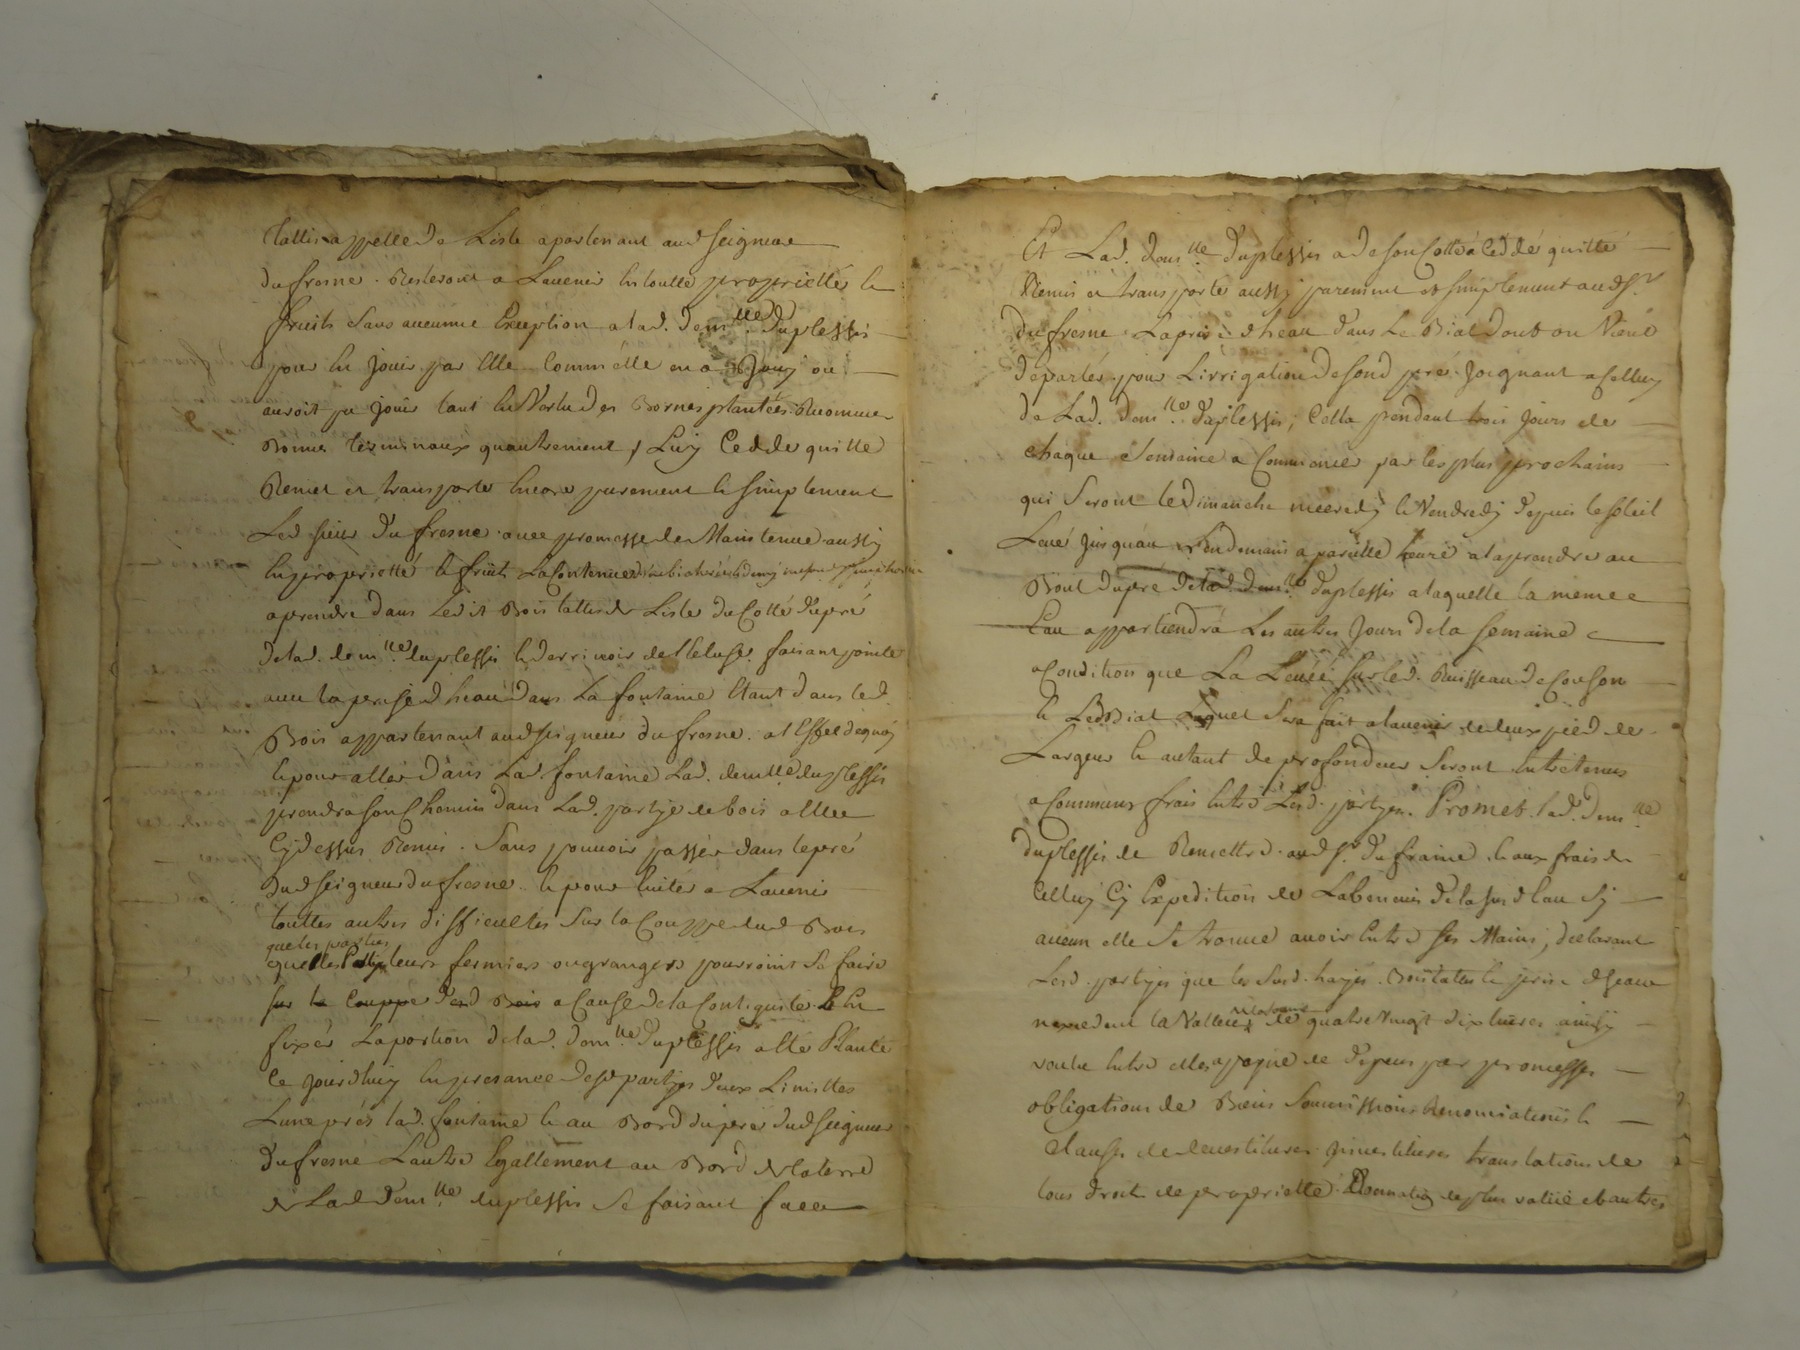 tallis appellé de Liste apartenant aud seigneur
du fresne. Resteront a Lavenir En toutte proprietté Et
fruits Sans aucunne Exception a lad. dem.lle duplessis
pour En Jouir par Elle Comm'elle en a Jouÿ ou
auroit pu jouir tant En Vertu des Bornes plantées
Bornes terminaux quautrement, Luy Cedde quitte
Remet et transporte Encore purement Et Simplement
Led sieur Du fresne avec promesse de Maintenue aussy
En propriettê Et fruits La Contenue
aprendre Dans Ledit Bois tallis de Liste du Cotté du pré
de lad. dem.lle duplessis faisant pointe
avec la prise d'heau dans La fontaine Etant dans led.
Bois appartenant aud seigneur du fresne. a l'Effet dequoy
Et pour aller dans Lad fontaine Lad. demlle duplessis
prendra son Chemin dans Lad. partye de bois a Elle
Cy dessus Remis. Sans pouvoir passer dans le pré
dud seigneur du fresne. Et pour Eviter a Lavenir
touttes autres difficultés Sur la Couppe dud Bois
que les parties
leurs fermiers ou grangers pourroint Se faire
sur la Couppe dud Bois a Cause de la Contiguité
fixér La portion de lad. dem.lle Duplessis a Eté Planté
Ce Jourd'huy En presance desd partyes deux Limittes
Lune prés lad. fontaine Et au Bord du pré dud Seigneur
du fresne Lautre Egallement au Bord de la terre
de Lad dem.lle duplessis Se faisant face
Et Lad. dem.lle Duplessis a de son Cotté Ceddé quitté
Remis et transporté aussy purement et simplement aud Sr.
du fresne La prise d'heau dans Le Bial dont on Vient
de parler pour Lirrigation de sond pré Joignant a Celluy
de Lad. dem.lle Duplessis, Cella pendant trois Jours de
chaque Semaine a Commencer par les plus prochains
qui Seront le Dimanche mecredy Et Vendredy depuis le soleil
Levé Jusqu'au Lendemain a pareille heure a la prendre au
Bout du pré de lad. dem.lle Duplessis a laquelle la meme
Eau appartiendra Les autres Jours de la Semaine
a Condition que La Levée Sur led. Ruisseau de Couson
Et Led Bial Sera fait a lavenir de deux pied de
Largeur Et autant de profondeur Seront Entretenus
a Communs frais Entre Lesd. partyes. Promet lad. dem.lle
Duplessis de Remettre aud Sr. du fraine Et aux frais de
Celluy Cy Expedition de Labenevis de la susd Eau Sy
aucun elle Se trouve avoir Entre Ses Mains, declarant
Lesd. partyes que les Susd. hayes Bois tallis Et prise d'heau
n'exedent la Valleur de quatre Vingt dix livres ainsy
voulu Entre elles a peyne de depens par promesses
obligations de Biens Soumissions Renonciations Et
Clauses de devestitures investitures translations de
tous droit de proprietté Donnation de plus valüe et autres